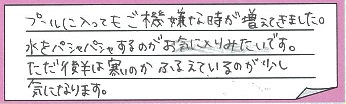 プールに入ってもご機嫌な時が増えてきました。
水をパシャパシャするのがお気に入りみたいです。
ただ後半は寒いのか ふるえているのが少し
気になります。